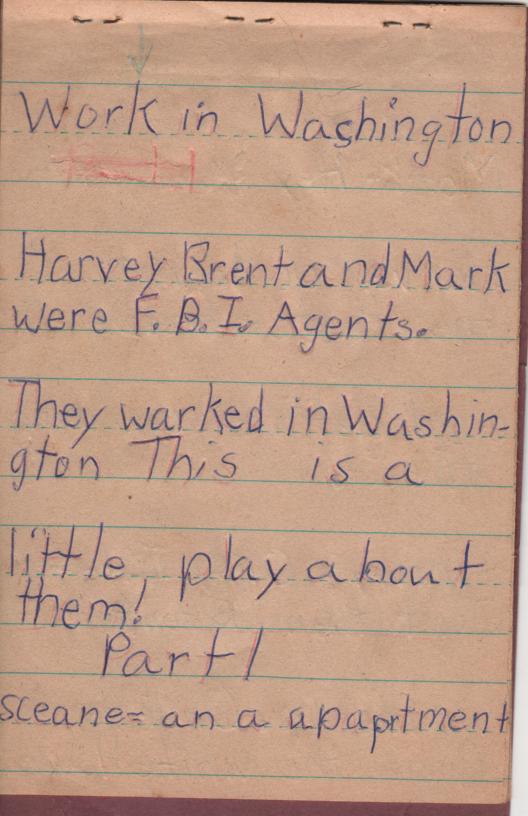 Work in Washington
Harvey Brent and Mark
were F.B.I. Agents.
They warked in Washin-
gton This is a
little play about
them!
Part 1
sceane= an a apaprtment